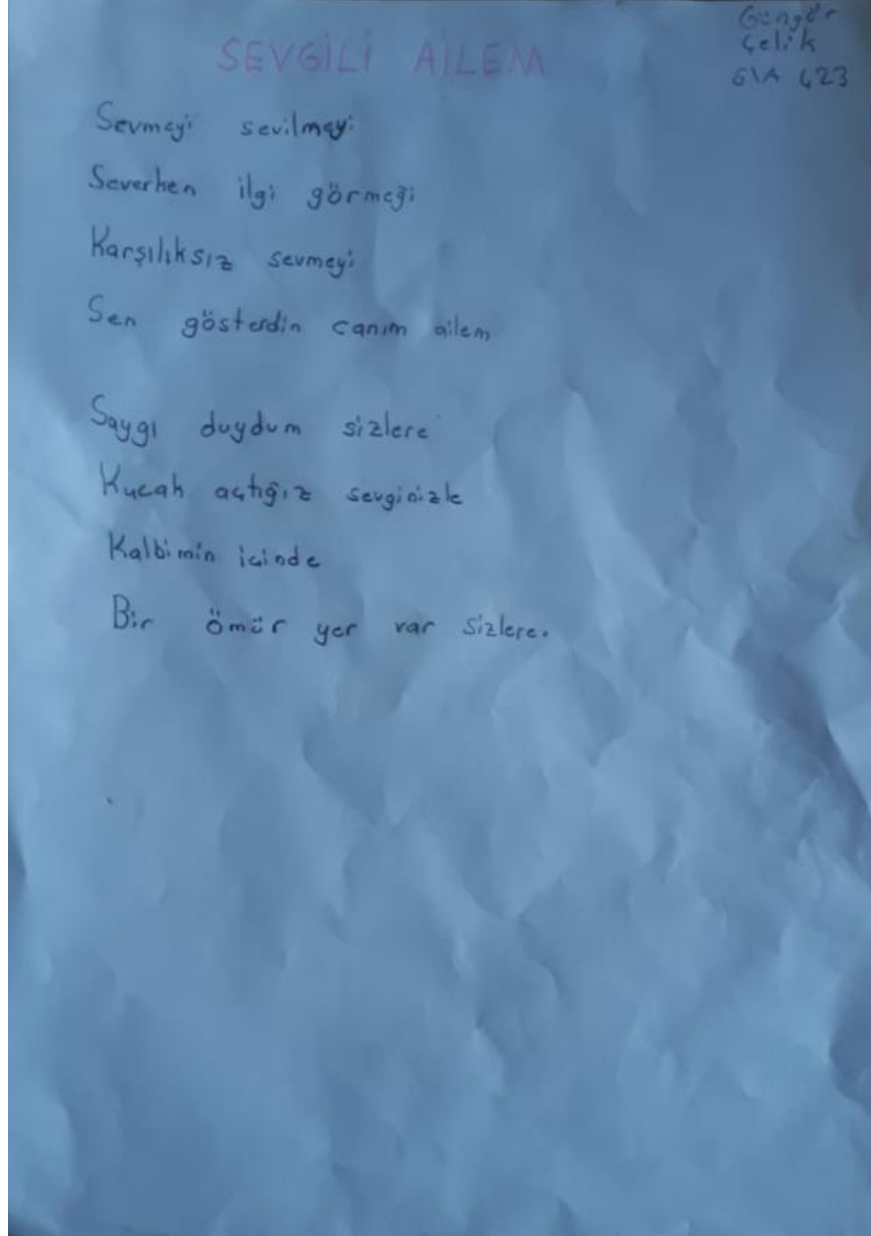 SEVGİLİ AİLEM
Güngör
Çelik
5\A 423
Sevmeyi sevilmeyi
Severken ilgi görmeği
Karşılıksız sevmeyi
Sen gösterdin canım ailem
Saygı duydum sizlere
Kucak açtığız sevginizle
Kalbimin içinde
Bir ömür yer var sizlere.